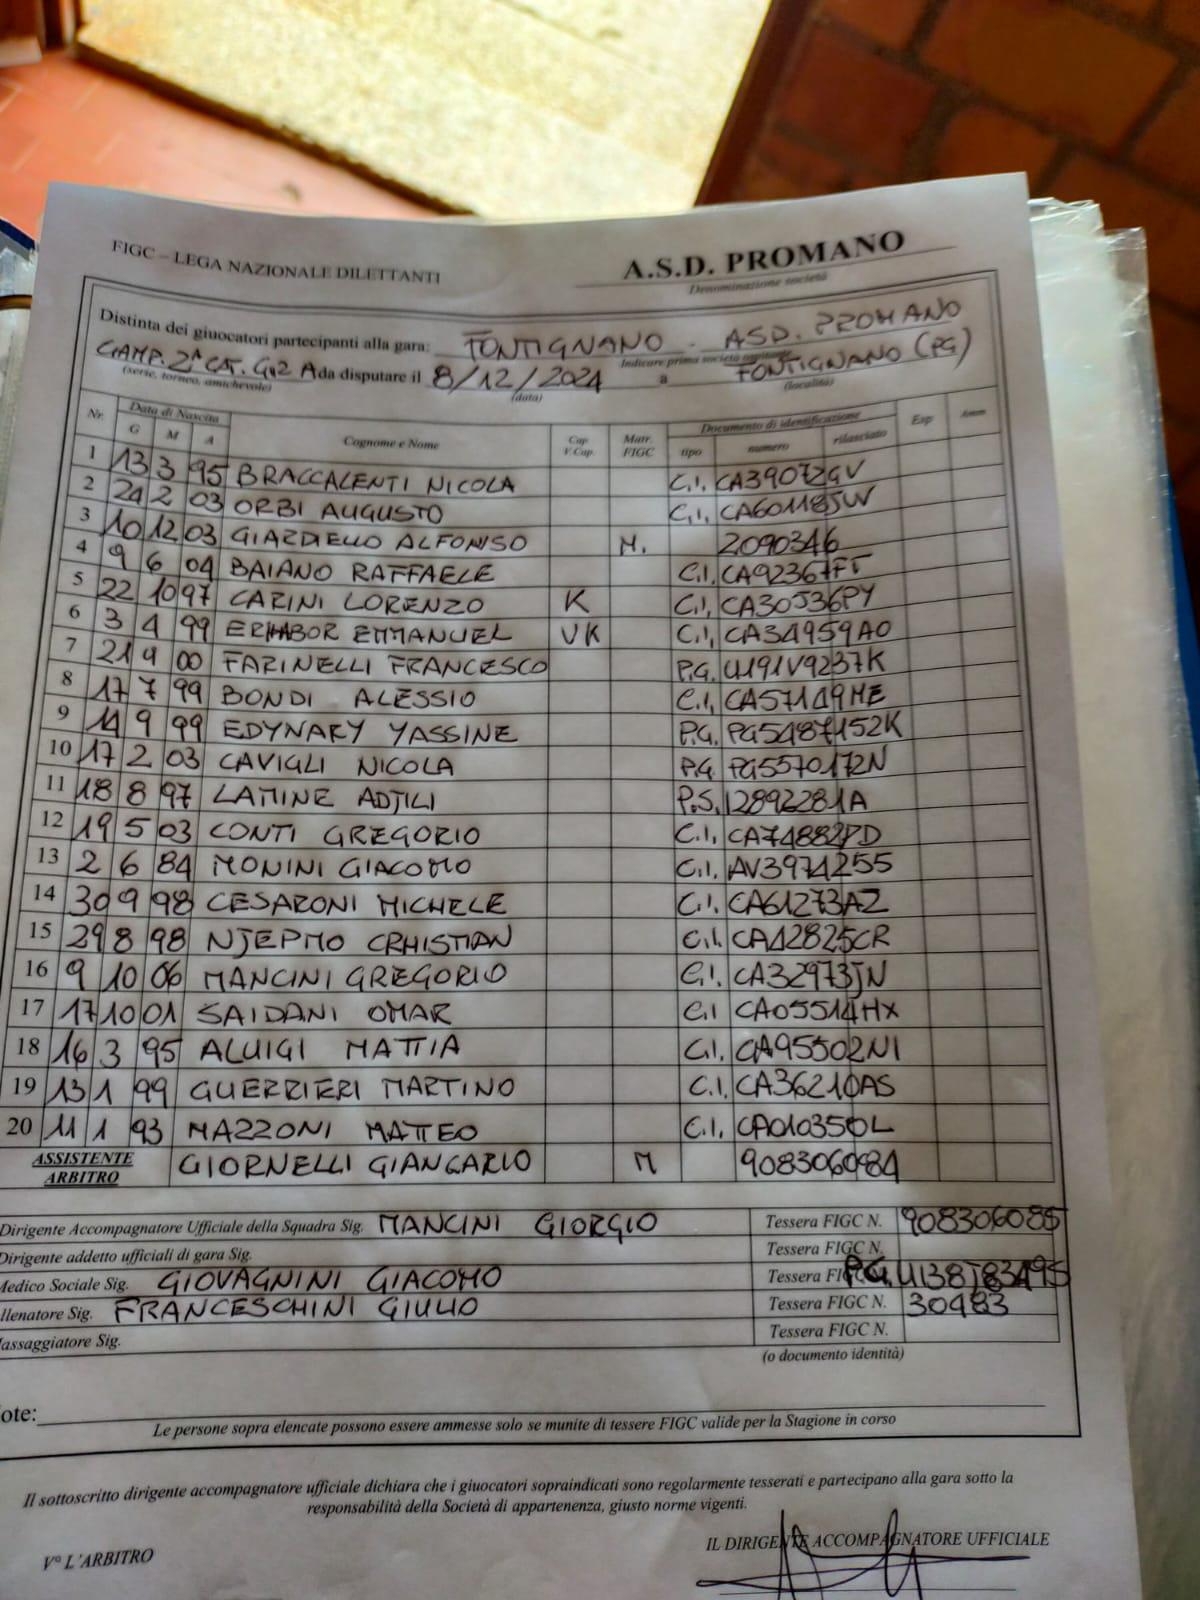 FIGC – LEGA NAZIONALE DILETTANTI
A.S.D. PROMANO
Denominazione società
Distinta dei giuocatori partecipanti alla gara: FONTIGNANO - ASD. PROMANO
Indicare prima società ospitante
CAMP. 2ª CAT. G.2 A da disputare il 8/12/2024 a FONTIGNANO (PG)
(serie, torneo, amichevole) (data) (località)
Nr. Data di Nascita Cognome e Nome Cap V.Cap. Matr. FIGC Documento di identificazione Esp Amm
G M A tipo numero rilasciato
1 13 3 95 BRACCALENTI NICOLA C.I. CA39072GV
2 24 2 03 ORBI AUGUSTO C.I. CA60118JW
3 10 12 03 GIARDIELLO ALFONSO M. 2090346
4 9 6 04 BAIANO RAFFAELE C.I. CA92367FT
5 22 10 97 CARINI LORENZO K C.I. CA30536PY
6 3 4 99 ERHABOR EMMANUEL VK C.I. CA34959AO
7 21 4 00 FARINELLI FRANCESCO P.G. U191V9237K
8 17 7 99 BONDI ALESSIO C.I. CA57149ME
9 14 9 99 EDYNARY YASSINE P.G. PG5487152K
10 17 2 03 CAVIGLI NICOLA P.G. PG5570172N
11 18 8 97 LAMINE ADJILI P.S. 12892281A
12 19 5 03 CONTI GREGORIO C.I. CA74882PD
13 2 6 84 MONINI GIACOMO C.I. AV3974255
14 30 9 98 CESARONI MICHELE C.I. CA61273AZ
15 29 8 98 NJEPMO CRHISTIAN C.I. CA42825CR
16 9 10 06 MANCINI GREGORIO C.I. CA32973JN
17 17 10 01 SAIDANI OMAR C.I CA05514HX
18 16 3 95 ALUIGI MATTIA C.I. CA95502NI
19 13 1 99 GUERRIERI MARTINO C.I. CA36210AS
20 11 1 93 MAZZONI MATTEO C.I. CA01035OL
ASSISTENTE ARBITRO GIORNELLI GIANCARLO M 9083060984
Dirigente Accompagnatore Ufficiale della Squadra Sig. MANCINI GIORGIO Tessera FIGC N. 908306085
Dirigente addetto ufficiali di gara Sig. Tessera FIGC N.
Medico Sociale Sig. GIOVAGNINI GIACOMO Tessera FIGC P.G. U138J83495
llenatore Sig. FRANCESCHINI GIULIO Tessera FIGC N. 30483
assaggiatore Sig. Tessera FIGC N.
(o documento identità)
ote:
Le persone sopra elencate possono essere ammesse solo se munite di tessere FIGC valide per la Stagione in corso
Il sottoscritto dirigente accompagnatore ufficiale dichiara che i giuocatori sopraindicati sono regolarmente tesserati e partecipano alla gara sotto la
responsabilità della Società di appartenenza, giusto norme vigenti.
V° L'ARBITRO
IL DIRIGENTE ACCOMPAGNATORE UFFICIALE